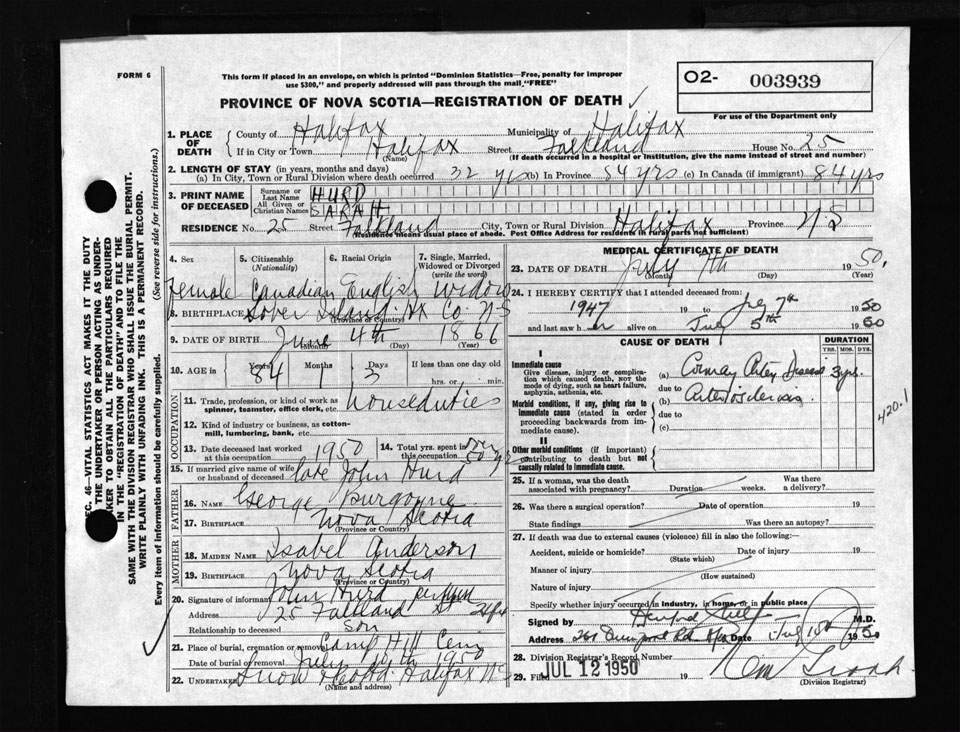 FORM 6
This form if placed in an envelope, on which is printed "Dominion Statistics—Free, penalty for improper
use $300," and properly addressed will pass through the mail "FREE"
PROVINCE OF NOVA SCOTIA—REGISTRATION OF DEATH
O2- 003939
For use of the Department only
1. PLACE OF DEATH
County of Halifax Municipality of Halifax
If in City or Town Halifax Street Falkland House No. 25
(Name) (If death occurred in a hospital or institution, give name instead of street and number)
2. LENGTH OF STAY (in years, months and days)
(a) In City, Town or Rural Division where death occurred 32 yrs (b) In Province 84 yrs (c) In Canada (if immigrant) 84 yrs
3. PRINT NAME OF DECEASED
Surname or Last Name HURD
All Given or Christian Names SARAH
RESIDENCE No. 25 Street Falkland City, Town or Rural Division Halifax Province N S
(Residence means usual place of abode. Post Office Address for residents in rural parts not sufficient)
4. Sex 5. Citizenship (Nationality) 6. Racial Origin 7. Single, Married, Widowed or Divorced (write the word)
Female Canadian English Widow
8. BIRTHPLACE Sober Island Hx Co. N-S
(Province or Country)
9. DATE OF BIRTH June 4th 1866
(Month) (Day) (Year)
10. AGE in Years Months Days If less than one day old
84 1 3 hrs. or min.
OCCUPATION
11. Trade, profession, or kind of work as spinner, teamster, office clerk, etc. houseduties
12. Kind of industry or business, as cotton-mill, lumbering, bank, etc.
13. Date deceased last worked at this occupation 1950
14. Total yrs. spent in this occupation over 50 yrs
15. If married give name of wife or husband of deceased late John Hurd
FATHER
16. NAME George Burgoyne
17. BIRTHPLACE Nova Scotia
(Province or Country)
MOTHER
18. MAIDEN NAME Isabel Anderson
19. BIRTHPLACE Nova Scotia
(Province or Country)
20. Signature of informant John Hurd
Address 25 Falkland St Hfx
Relationship to deceased Son
21. Place of burial, cremation or removal Camp Hill Cem
Date of burial or removal July 1950
22. UNDERTAKER Snow Halifax N-S
(Name and address)
MEDICAL CERTIFICATE OF DEATH
23. DATE OF DEATH July 7th 1950
(Month) (Day) (Year)
24. I HEREBY CERTIFY that I attended deceased from:
1947 19 to July 7th 1950
and last saw her alive on July 5th 1950
CAUSE OF DEATH
DURATION
YRS. MOS. DYS.
I
Immediate cause
Give disease, injury or complication which caused death, not the mode of dying, such as heart failure, asphyxia, asthenia, etc.
(a) Coronary Artery Disease 3 yrs.
due to
Morbid conditions, if any, giving rise to immediate cause (stated in order proceeding backwards from immediate cause).
(b) Arteriosclerosis
due to
(c)
420.1
II
Other morbid conditions (if important) contributing to death but not causally related to immediate cause.
25. If a woman, was the death associated with pregnancy? Duration weeks. Was there a delivery?
26. Was there a surgical operation? Date of operation 19
State findings Was there an autopsy?
27. If death was due to external causes (violence) fill in also the following:—
Accident, suicide or homicide? Date of injury 19
(State which)
Manner of injury
(How sustained)
Nature of injury
Specify whether injury occurred in Industry, in home, or in public place
Signed by M.D.
Address Rd Date July 1950
28. Division Registrar's Record Number
29. Filed JUL 12 1950 19
(Division Registrar)
SEC. 46—VITAL STATISTICS ACT MAKES IT THE DUTY
OF THE UNDERTAKER OR PERSON ACTING AS UNDERTAKER TO OBTAIN ALL THE PARTICULARS REQUIRED
IN THE "REGISTRATION OF DEATH" AND TO FILE THE
SAME WITH THE DIVISION REGISTRAR WHO SHALL ISSUE THE BURIAL PERMIT.
WRITE PLAINLY WITH UNFADING INK. THIS IS A PERMANENT RECORD.
Every item of information should be carefully supplied. (See reverse side for instructions.)